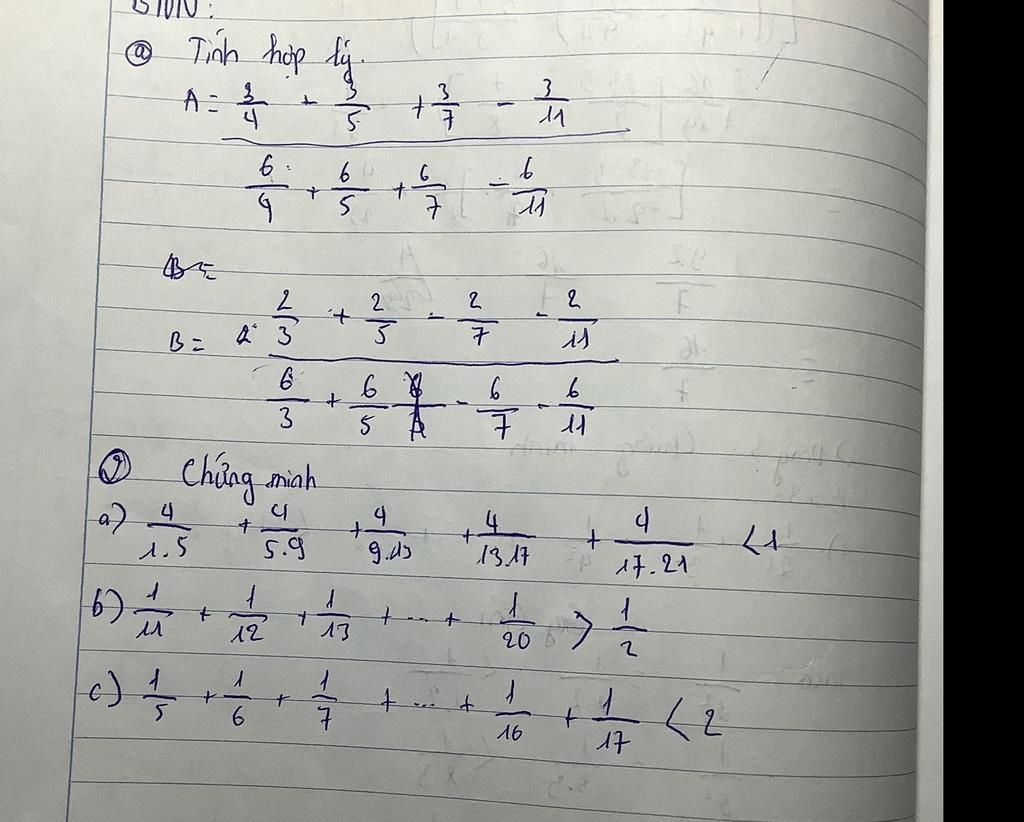 BTVN:
@ Tính hợp lý.
A = 3/4 + 3/5 + 3/7 - 3/11
6/9 + 6/5 + 6/7 - 6/11
B =
B = 2/3 + 2/5 - 2/7 - 2/11
6/3 + 6/5 - 6/7 - 6/11
② Chứng minh
a) 4/1.5 + 4/5.9 + 4/9.13 + 4/13.17 + 4/17.21 < 1
b) 1/11 + 1/12 + 1/13 + ... + 1/20 > 1/2
c) 1/5 + 1/6 + 1/7 + ... + 1/16 + 1/17 < 2